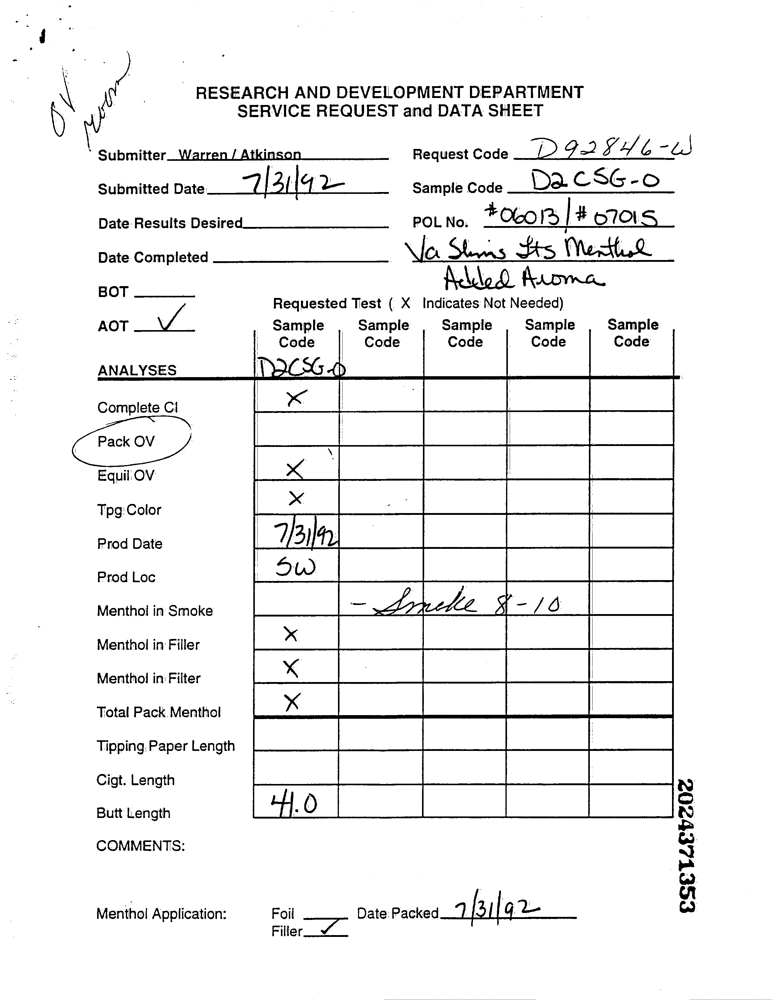 OV
room
RESEARCH AND DEVELOPMENT DEPARTMENT
SERVICE REQUEST and DATA SHEET
Submitter Warren / Atkinson
Request Code D92846-W
Submitted Date 7/31/92
Sample Code D2CSG-0
Date Results Desired
POL No. #06013/#07015
Date Completed
Va Slims Lts Menthol
Added Aroma
BOT
Requested Test ( X Indicates Not Needed)
AOT ✓
Sample Code Sample Code Sample Code Sample Code Sample Code
ANALYSES D2CSG-0
Complete CI X
Pack OV
Equil OV X
Tpg Color X
Prod Date 7/31/92
Prod Loc SW
Menthol in Smoke - Smoke 8-10
Menthol in Filler X
Menthol in Filter X
Total Pack Menthol X
Tipping Paper Length
Cigt. Length
Butt Length 41.0
COMMENTS:
Menthol Application: Foil Date Packed 7/31/92
Filler ✓
2024371353